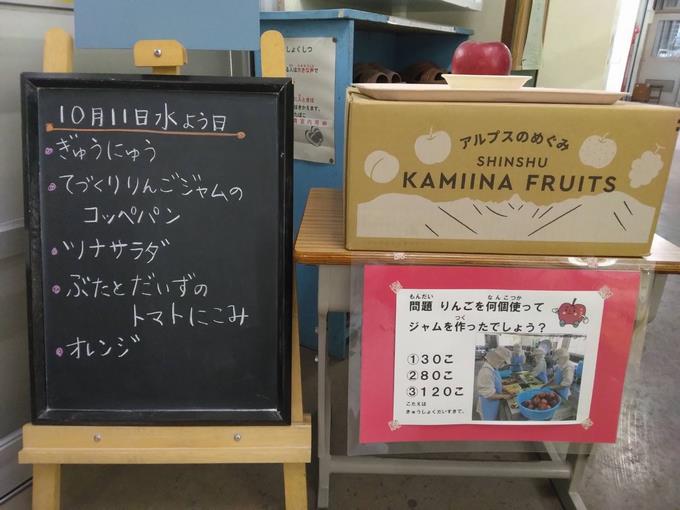 10月11日水よう日
ぎゅうにゅう
てづくりりんごジャムの
コッペパン
ツナサラダ
ぶたとだいずの
トマトにこみ
オレンジ
しょくしつ
アルプスのめぐみ
SHINSHU
KAMIINA FRUITS
もんだい なんこつか
問題 りんごを何個使って
つく
ジャムを作ったでしょう?
①30こ
②80こ
③120こ
こたえは
きゅうしょくだいすきで。